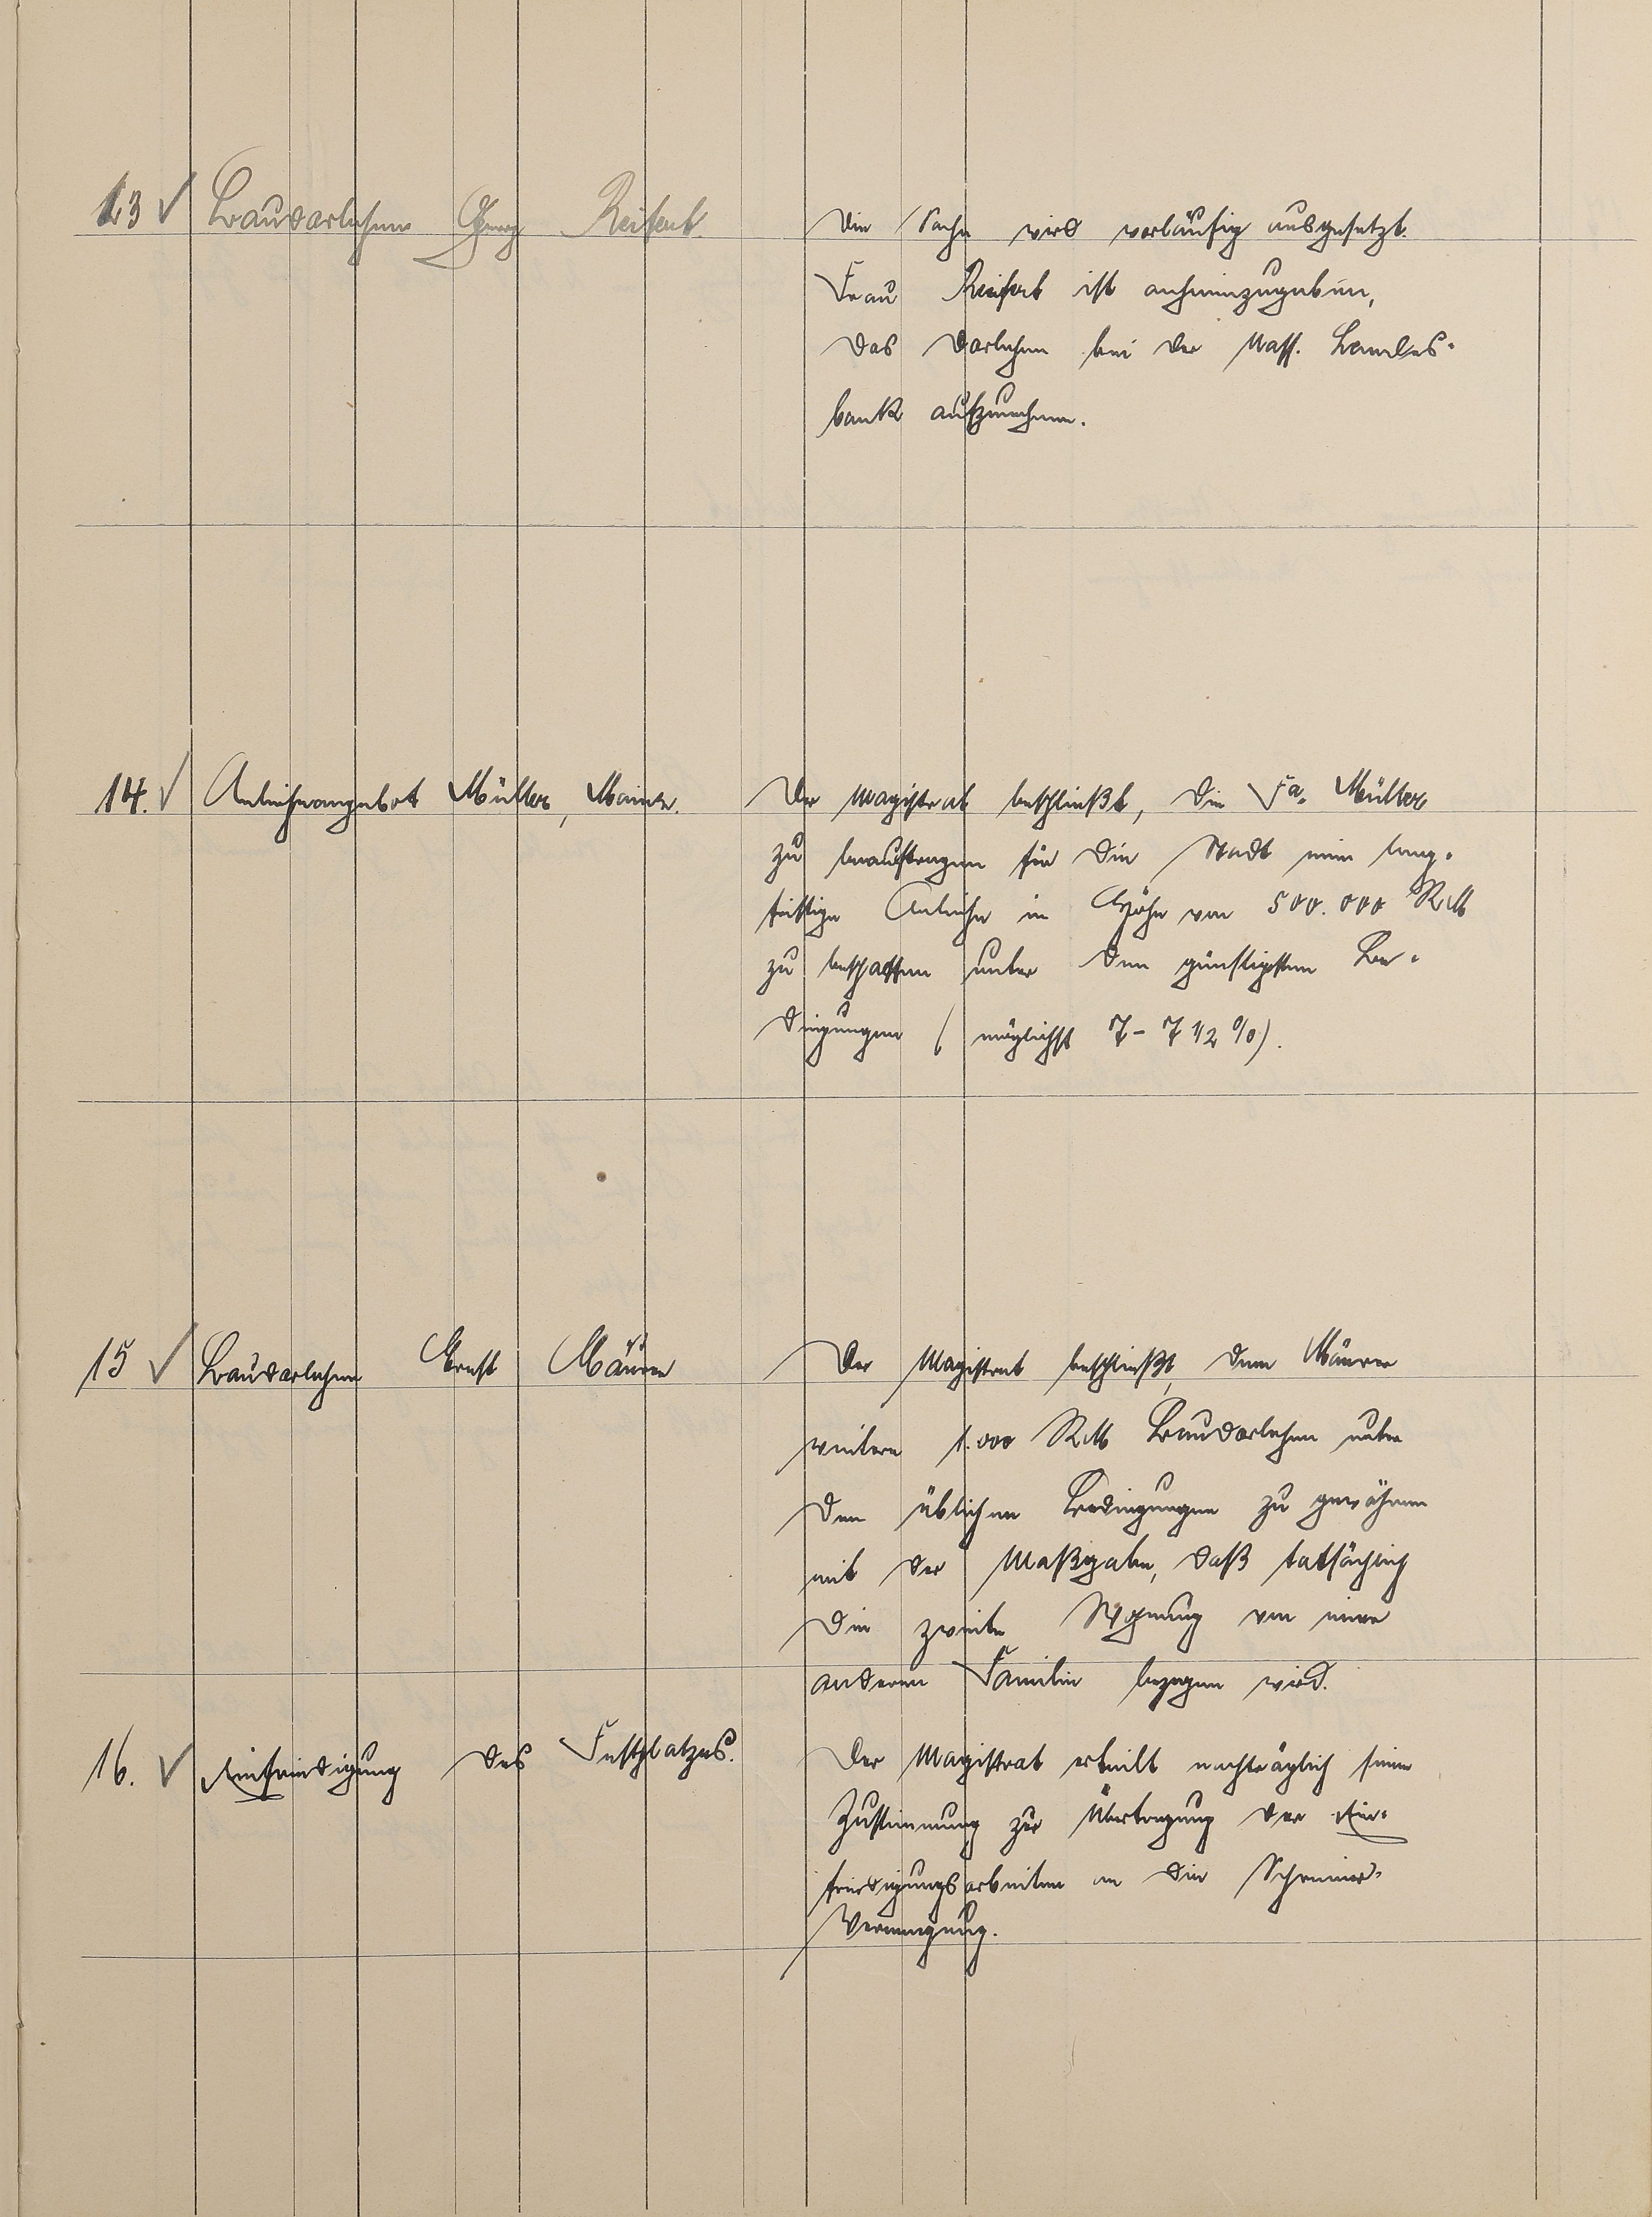 13 ✓ Baudarlehen Georg Reifert
Die Sache wird vorläufig ausgesetzt.
Frau Reifert ist anheimzugeben,
das Darlehen bei der Nass. Landes-
bank aufzunehmen.
14. ✓ Anleiheangebot Müller, Mainz.
Der Magistrat beschließt, die Fa. Müller
zu beauftragen für die Stadt eine lang-
fristige Anleihe in Höhe von 500.000 RM
zu beschaffen unter den günstigsten Be-
dingungen (möglichst 7 - 7 1/2 %).
15 ✓ Baudarlehen Ernst Mäurer
Der Magistrat beschließt, dem Mäurer
weitere 1.000 RM Baudarlehen unter
den üblichen Bedingungen zu gewähren
mit der Maßgabe, daß tatsächlich
die zweite Wohnung von einer
anderen Familie bezogen wird.
16. ✓ Einfriedigung des Festplatzes.
Der Magistrat erteilt nachträglich seine
Zustimmung zur Übertragung der Ein-
friedigungsarbeiten an die Schreiner-
Vereinigung.